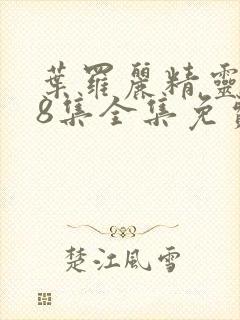 葉羅麗精靈
8集全集免
楚江風雪